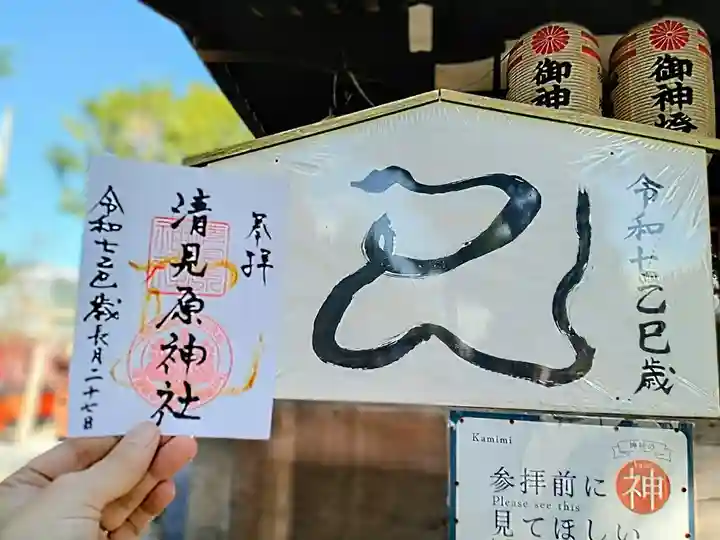 奉拝
清見原神社
令和七乙巳歳長月二十七日
令和七乙巳歳
御神
御神燈
Kamimi
参拝前に
Please see this
見てほしい
神